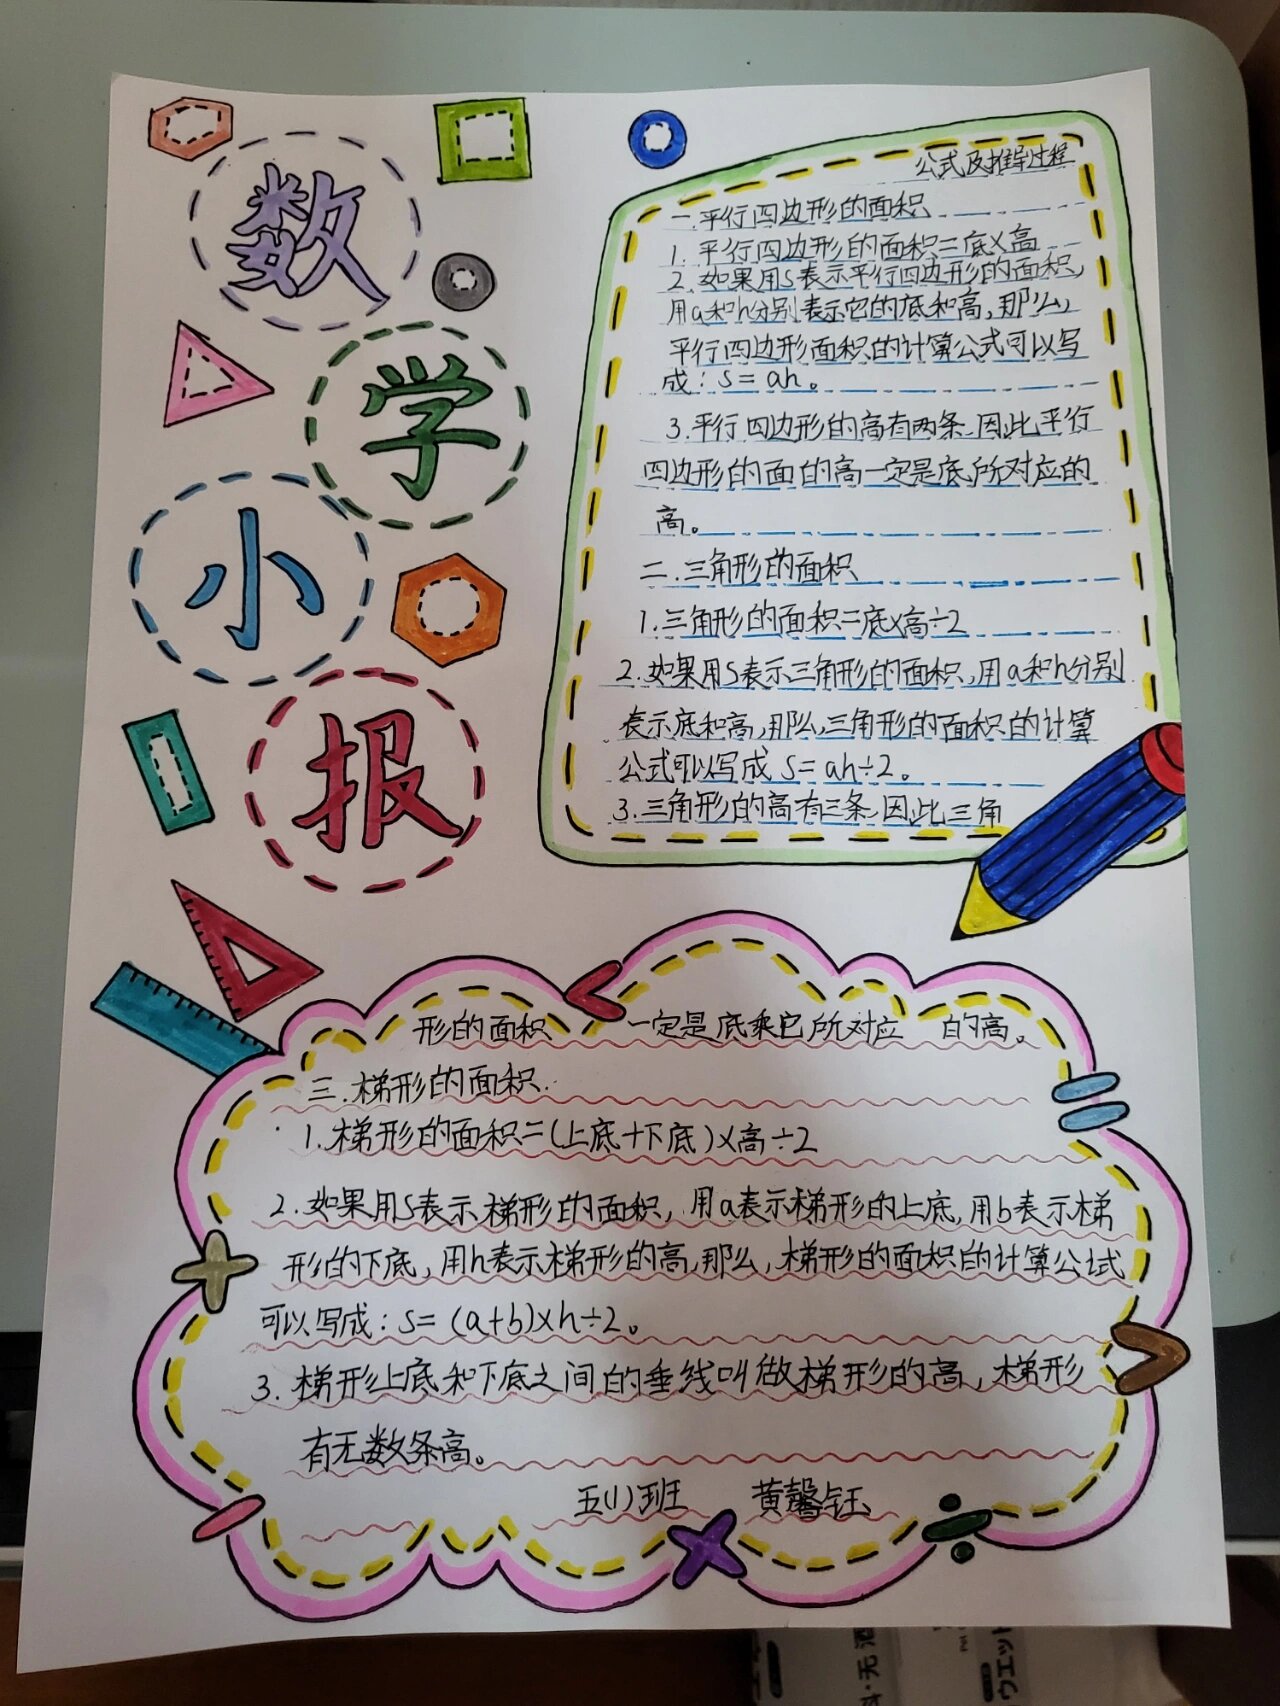 数
学
小
报
公式及推导过程
一.平行四边形的面积
1.平行四边形的面积=底×高
2.如果用S表示平行四边形的面积,
用a和h分别表示它的底和高,那么,
平行四边形面积的计算公式可以写
成:S=ah。
3.平行四边形的高有两条.因此平行
四边形的面的高一定是底所对应的
高。
二.三角形的面积
1.三角形的面积=底×高÷2
2.如果用S表示三角形的面积,用a和h分别
表示底和高,那么,三角形的面积的计算
公式可以写成S=ah÷2。
3.三角形的高有三条.因此三角
形的面积一定是底乘它所对应的高。
三.梯形的面积.
1.梯形的面积=(上底+下底)×高÷2
2.如果用S表示梯形的面积,用a表示梯形的上底,用b表示梯
形的下底,用h表示梯形的高,那么,梯形的面积的计算公式
可以写成:S=(a+b)×h÷2。
3.梯形上底和下底之间的垂线叫做梯形的高,梯形
有无数条高。
五(1)班 黄馨钰
无酒
ウエット